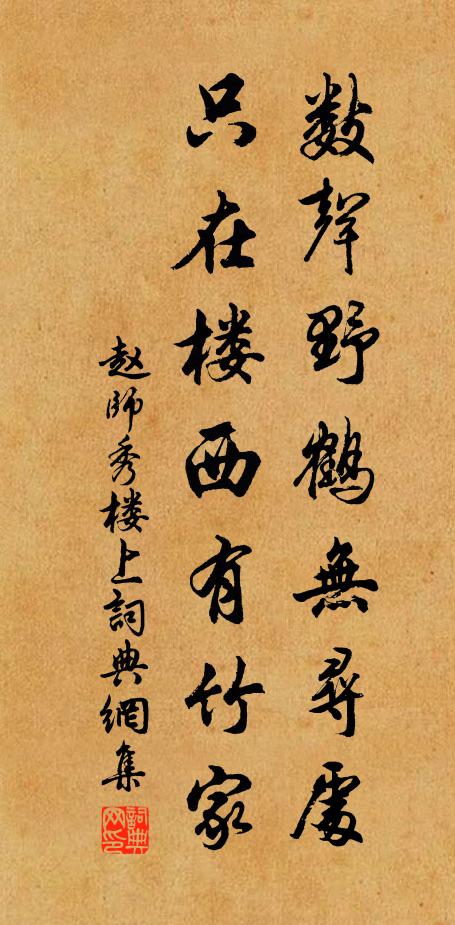 數聲野鶴無尋處
只在楼西有竹家
赵師秀楼上詞典網集
詞典网印